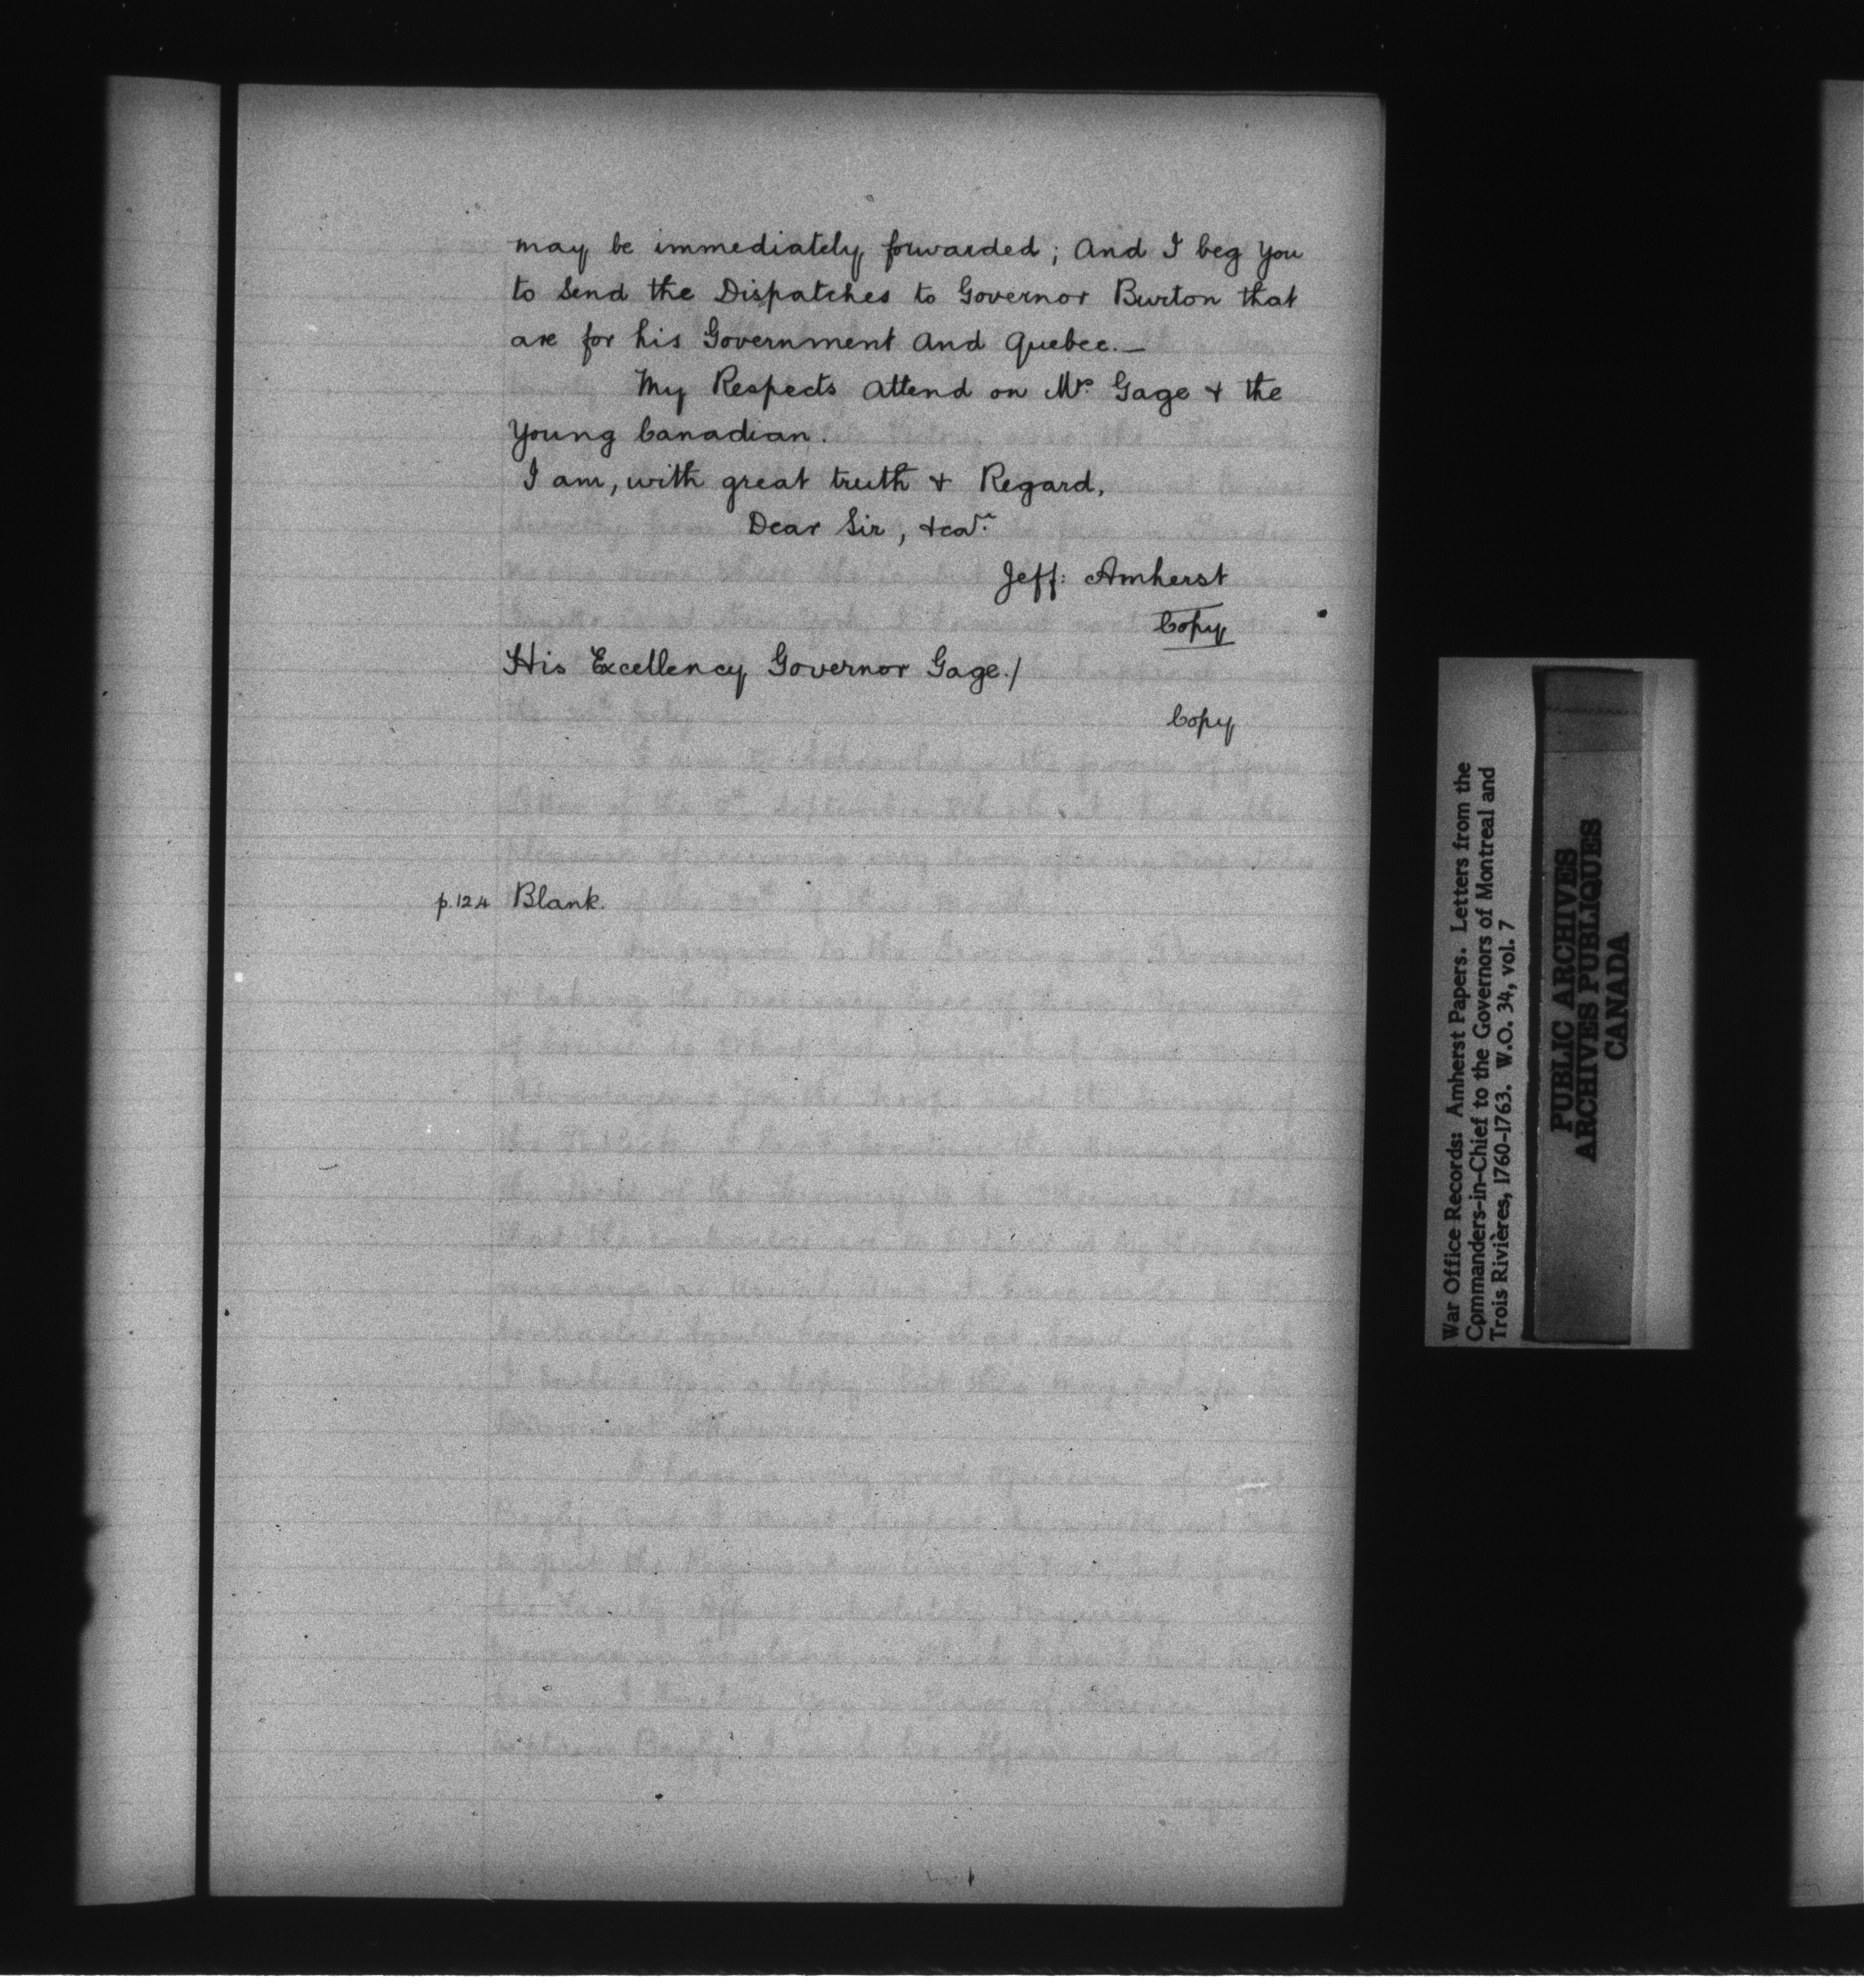 may be immediately forwarded; And I beg You
to Send the Dispatches to Governor Burton that
are for his Government And Quebec.—
My Respects Attend on Mrs Gage & the
Young Canadian.
I am, with great truth & Regard,
Dear Sir, &ca.
Jeff: Amherst
Copy
His Excellency Governor Gage./
Copy
p.124 Blank.
War Office Records: Amherst Papers. Letters from the
Cpmmanders-in-Chief to the Governors of Montreal and
Trois Rivières, 1760-1763. W.O. 34, vol. 7
PUBLIC ARCHIVES
ARCHIVES PUBLIQUES
CANADA